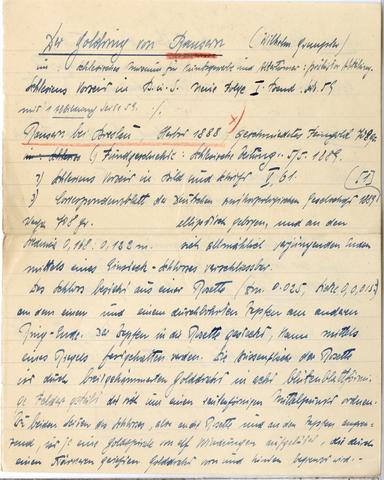 Der Goldring von Ransern (Wilhelm Grempler)
in: Schlesisches Museum für Kunstgewerbe und Altertümer:
Schlesiens Vorzeit in B. u. S. Neue Folge I. Band. S. 59
mit 1 Abbildung Seite 59. ./.
Ransern bei Breslau 1888 x) Geschmiedetes Feingold
1) Fundgeschichte: Schlesische Zeitung 5/5 1889.
2) Schlesiens Vorzeit in Bild und Schrift I, 61. (59)
3) Correspondenzblatt der Deutschen anthropologischen Gesellschaft 1889
708 gr. elliptisch gebogen, und an den
0,168, 0,132 m. sich allmählich verjüngenden Enden
mittels eines Einsteck-Schlosses verschliessbar.
Das Schloss besteht aus einer Rosette (Dm. 0.025, Dicke 0,0,015)
an dem einen und einem durchbohrten Zapfen am anderen
Ring-Ende. Der Zapfen in die Rosette gesteckt, kann mittels
eines Riegels festgehalten werden. Die Aussenfläche der Rosette
ist durch breitgehämmerten Golddraht in acht blütenblattförmi-
ge Felder geteilt die sich um einen kreisförmigen Mittelpunkt ordnen.
Zu beiden Seiten des Schlosses, also an die Rosette und an den Zapfen angren-
zend, ist je eine Goldspirale von elf Windungen aufgelötet, die durch
einen stärkeren gereifelten Golddraht von und hinten begrenzt wird. -